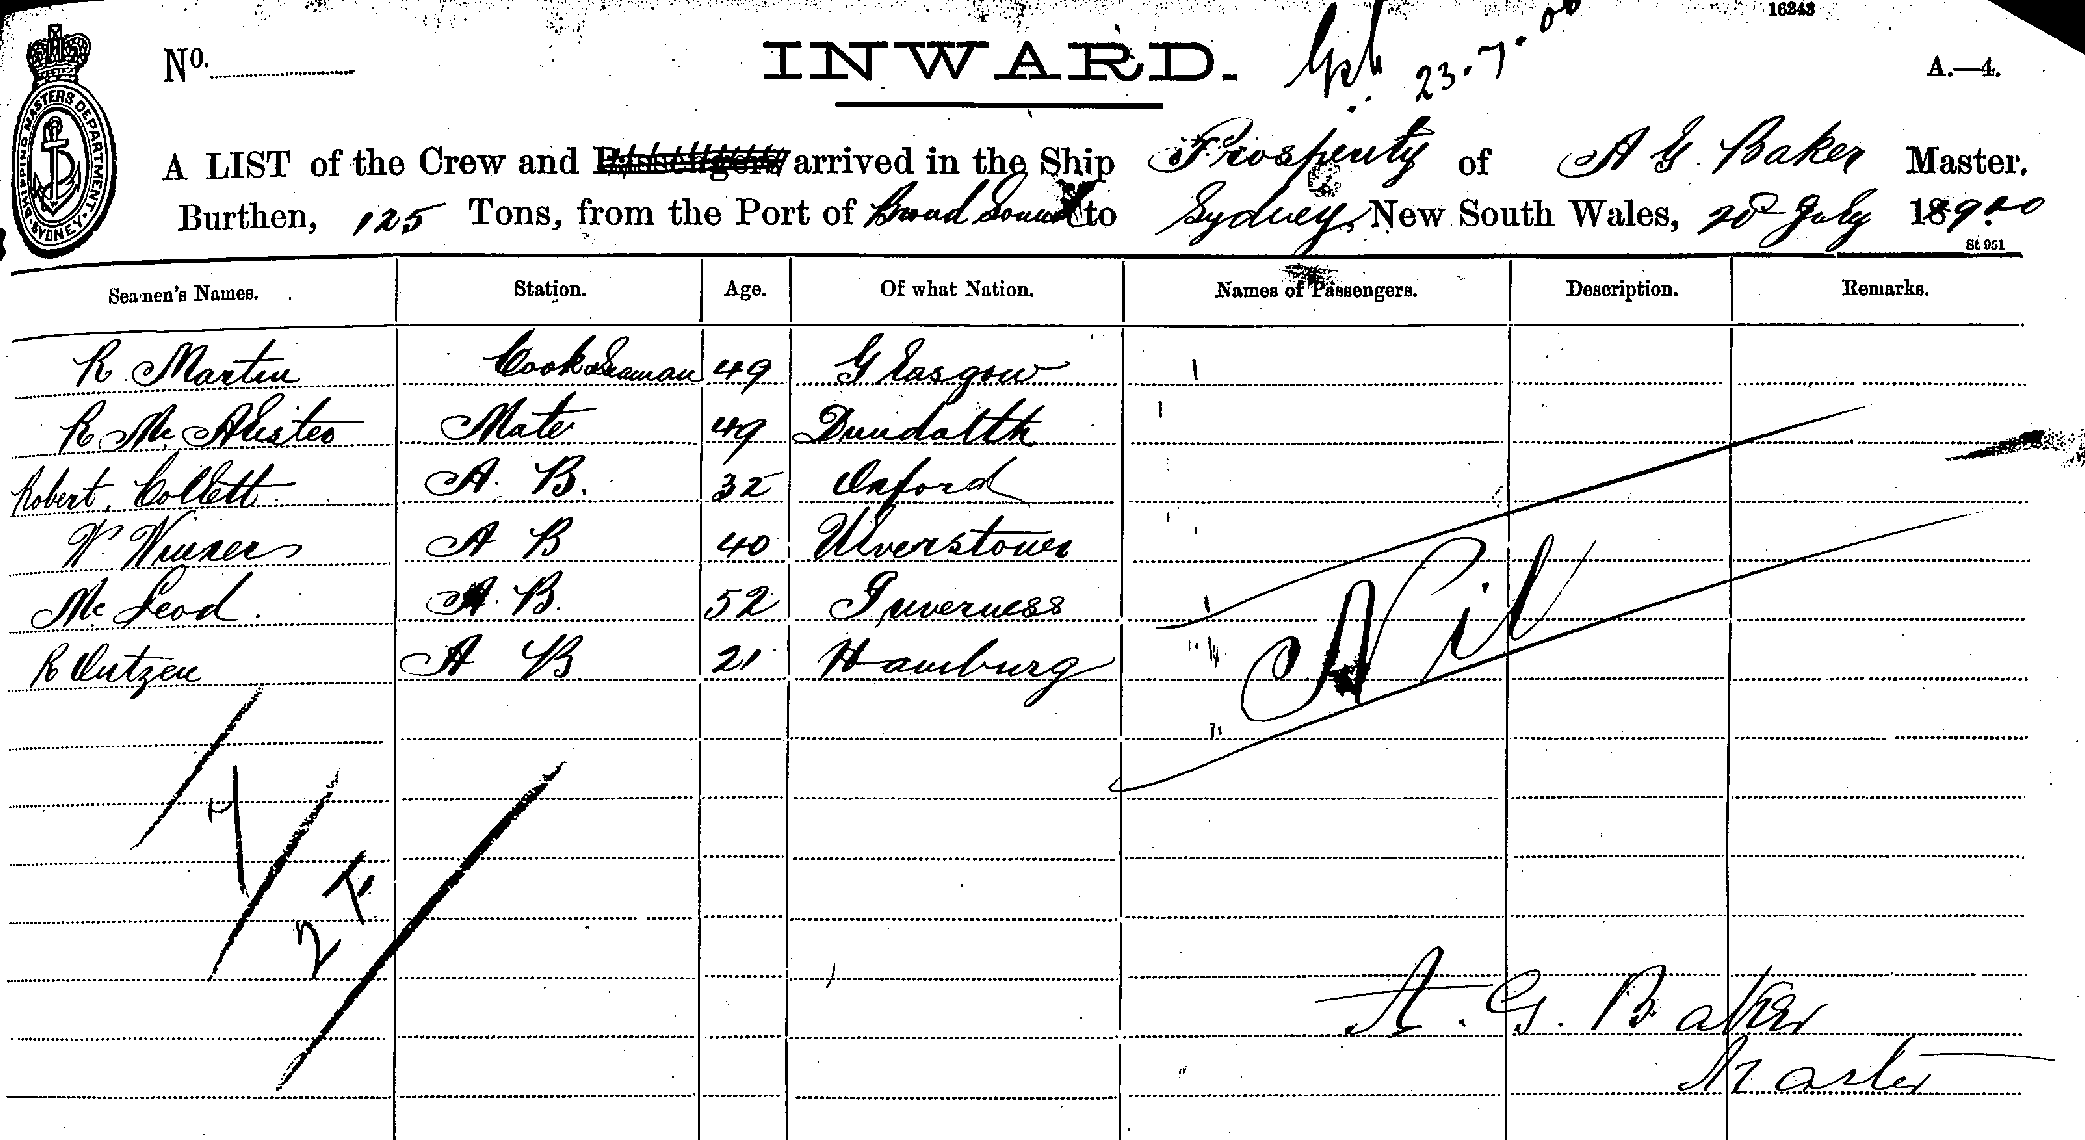 16243
No. INWARD. 23.7.00 A.—4.
SHIPPING MASTERS DEPARTMENT. SYDNEY.
A LIST of the Crew and Passengers arrived in the Ship Prosperity of A G. Baker Master.
Burthen, 125 Tons, from the Port of Broad Sound to Sydney, New South Wales, 20 July 1900
St 951
Seamen's Names. Station. Age. Of what Nation. Names of Passengers. Description. Remarks.
R. Martin Cook & Seaman 49 Glasgow
R Mc Alister Mate 49 Dundalk
Robert Collett A. B. 32 Oxford
W. A B 40 Ulverstone
Mc Leod. A. B. 52 Inverness
R A B 21 Hamburg
Nil
A. G. Baker
Master